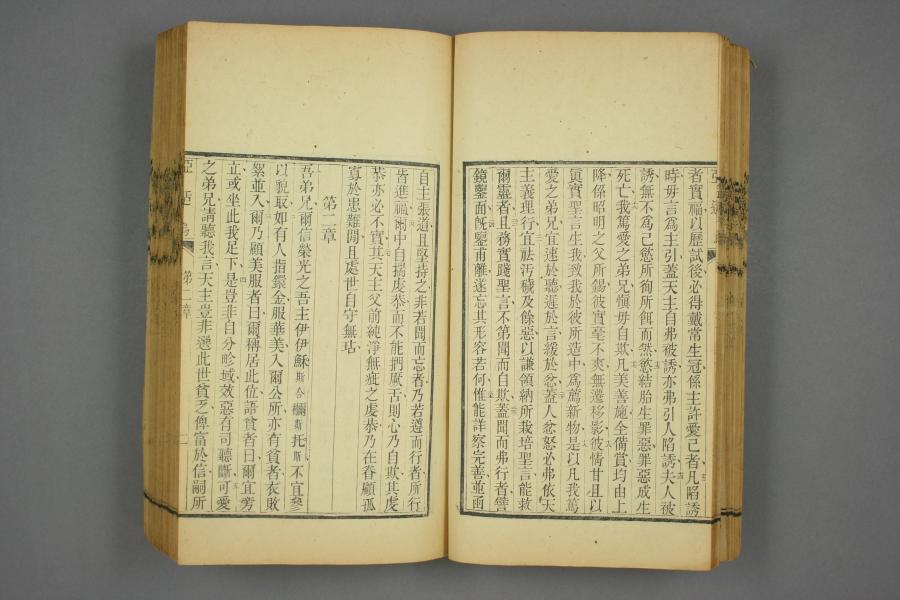 者實福以歷試後必得戴常生冠係主許愛己者凡陷誘
時毋言爲主引蓋天主自弗被誘亦弗引人陷誘夫人被
誘無不爲己慾所徇所餌而然慾結胎生罪惡罪惡成生
死亡我篤愛之弟兄愼毋自欺凡美善施全備賞均由上
降係昭明之父所錫彼實毫不爽無遷移影彼情甘且以
眞實聖言生我致我於彼所造中爲薦新物是以凡我篤
愛之弟兄宜速於聽遲於言緩於忿蓋人忿怒必弗依天
主義理行宜祛汚穢及餘惡以謙領納所栽培聖言能救
爾靈者且務實踐聖言不第聞而自欺蓋聞而弗行者譬
鏡鑒面旣鑒甫離遂忘其形容若何惟能詳察完善並函
自主張道且堅持之非若聞而忘者乃若遵而行者所行
皆進福爾中自揣虔恭而不能捫厥舌則心乃自欺其虔
恭亦必不實其天主父前純淨無疵之虔恭乃在眷顧孤
寡於患難閒且處世自守無玷
第二章
吾弟兄爾信榮光之吾主伊伊穌斯合櫊斯托斯不宜參
以貌取如有人指鐶金服華美入爾公所亦有貧者衣敗
絮並入爾乃顧美服者曰爾稱居此位語貧者曰爾宜旁
立或坐此我足下是豈非自分畛域效惡有司聽斷可愛
之弟兄請聽我言天主豈非遞此世貧乏俾富於信嗣所
第二章
二